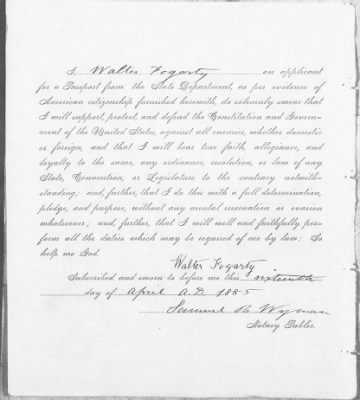 I, Walter Fogarty an applicant
for a Passport from the State Department, as per evidence of
American citizenship furnished herewith, do solemnly swear that
I will support, protect, and defend the Constitution and Govern-
ment of the United States, against all enemies, whether domestic
or foreign, and that I will bear true faith, allegiance, and
loyalty to the same, any ordinance, resolution, or law of any
State, Convention, or Legislature to the contrary notwith-
standing; and, further, that I do this with a full determination,
pledge, and purpose, without any mental reservation or evasion
whatsoever; and, further, that I will well and faithfully per-
form all the duties which may be required of me by law: So
help me God.
Walter Fogarty
Subscribed and sworn to before me this sixteenth
day of April A.D. 1885
Samuel B. Wyman
Notary Public.